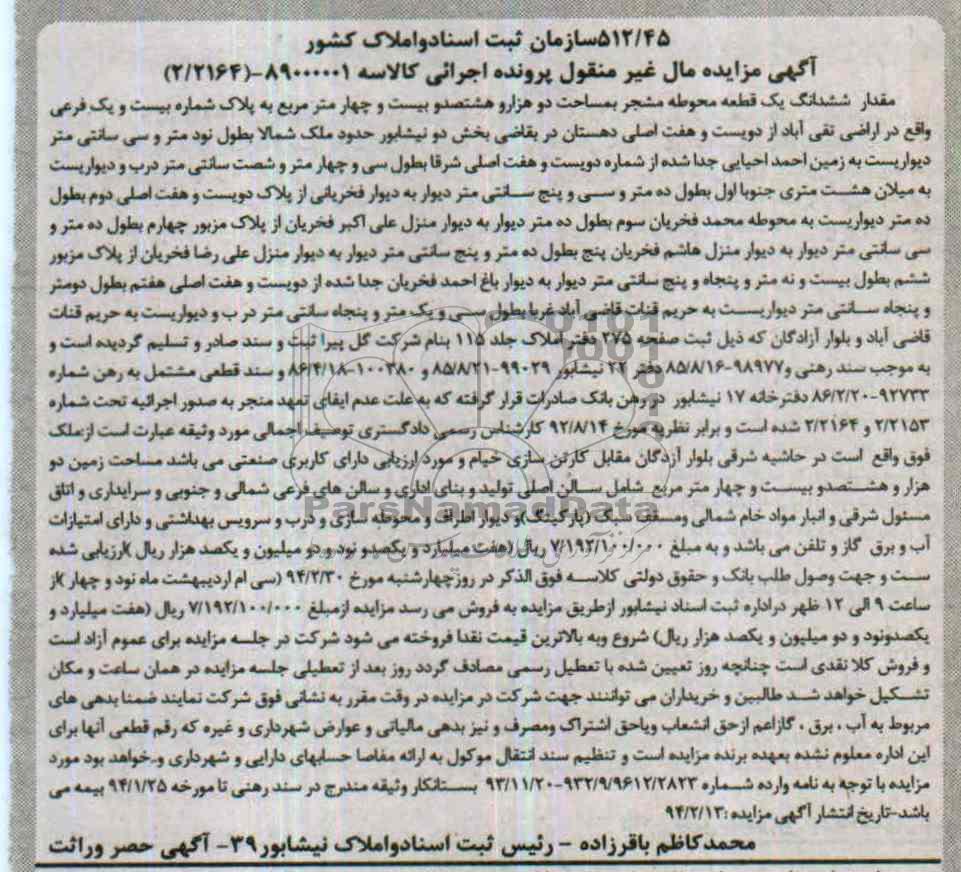 ۵۱۲/۴۵سازمان ثبت اسنادواملاک کشور
آگهی مزایده مال غیر منقول پرونده اجرائی کالاسه ۸۹۰۰۰۰۰۱-(۲/۲۱۶۴)
مقدار ششدانگ یک قطعه محوطه مشجر بمساحت دو هزارو هشتصدو بیست و چهار متر مربع به پلاک شماره بیست و یک فرعی
واقع در اراضی تقی آباد از دویست و هفت اصلی دهستان در بقاضی بخش دو نیشابور حدود ملک شمالا بطول نود متر و سی سانتی متر
دیواریست به زمین احمد احیایی جدا شده از شماره دویست و هفت اصلی شرقا بطول سی و چهار متر و شصت سانتی متر درب و دیواریست
به میلان هشت متری جنوبا اول بطول ده متر و سی و پنج سانتی متر دیوار به دیوار فخریانی از پلاک دویست و هفت اصلی دوم بطول
ده متر دیواریست به محوطه محمد فخریان سوم بطول ده متر دیوار به دیوار منزل علی اکبر فخریان از پلاک مزبور چهارم بطول ده متر و
سی سانتی متر دیوار به دیوار منزل هاشم فخریان پنج بطول ده متر و پنج سانتی متر دیوار به دیوار منزل علی رضا فخریان از پلاک مزبور
ششم بطول بیست و نه متر و پنجاه و پنج سانتی متر دیوار به دیوار باغ احمد فخریان جدا شده از دویست و هفت اصلی هفتم بطول دومتر
و پنجاه سانتی متر دیواریست به حریم قنات قاضی آباد غربا بطول سی و یک متر و پنجاه سانتی متر در ب و دیواریست به حریم قنات
قاضی آباد و بلوار آزادگان که ذیل ثبت صفحه ۲۷۵ دفتر املاک جلد ۱۱۵ بنام شرکت گل پیرا ثبت و سند صادر و تسلیم گردیده است و
به موجب سند رهنی و۹۸۹۷۷-۸۵/۸/۱۶ دفتر ۲۲ نیشابور ۹۹۰۲۹-۸۵/۸/۲۱ و ۱۰۰۳۸۰-۸۶/۴/۱۸ و سند قطعی مشتمل به رهن شماره
۹۲۷۳۳-۸۶/۲/۲۰ دفترخانه ۱۷ نیشابور در رهن بانک صادرات قرار گرفته که به علت عدم ایفای تعهد منجر به صدور اجرائیه تحت شماره
۲/۲۱۵۳ و ۲/۲۱۶۴ شده است و برابر نظریه مورخ ۹۲/۸/۱۴ کارشناس رسمی دادگستری توصیف اجمالی مورد وثیقه عبارت است از:ملک
فوق واقع است در حاشیه شرقی بلوار آزدگان مقابل کارتن سازی خیام و مورد ارزیابی دارای کاربری صنعتی می باشد مساحت زمین دو
هزار و هشتصدو بیست و چهار متر مربع شامل سالن اصلی تولید و بنای اداری و سالن های فرعی شمالی و جنوبی و سرایداری و اتاق
مسئول شرقی و انبار مواد خام شمالی ومسقف سبک (پارکینگ)و دیوار اطراف و محوطه سازی و درب و سرویس بهداشتی و دارای امتیازات
آب و برق گاز و تلفن می باشد و به مبلغ ۷/۱۹۲/۱۰۰/۰۰۰ ریال (هفت میلیارد و یکصدو نود و دو میلیون و یکصد هزار ریال )ارزیابی شده
ست و جهت وصول طلب بانک و حقوق دولتی کلاسه فوق الذکر در روزچهارشنبه مورخ ۹۴/۲/۳۰ (سی ام اردیبهشت ماه نود و چهار )از
ساعت ۹ الی ۱۲ ظهر دراداره ثبت اسناد نیشابور ازطریق مزایده به فروش می رسد مزایده ازمبلغ ۷/۱۹۲/۱۰۰/۰۰۰ ریال (هفت میلیارد و
یکصدونود و دو میلیون و یکصد هزار ریال) شروع وبه بالاترین قیمت نقدا فروخته می شود شرکت در جلسه مزایده برای عموم آزاد است
و فروش کلا نقدی است چنانچه روز تعیین شده با تعطیل رسمی مصادف گردد روز بعد از تعطیلی جلسه مزایده در همان ساعت و مکان
تشکیل خواهد شد طالبین و خریداران می توانند جهت شرکت در مزایده در وقت مقرر به نشانی فوق شرکت نمایند ضمنا بدهی های
مربوط به آب ، برق ، گازاعم ازحق انشعاب ویاحق اشتراک ومصرف و نیز بدهی مالیاتی و عوارض شهرداری و غیره که رقم قطعی آنها برای
این اداره معلوم نشده بعهده برنده مزایده است و تنظیم سند انتقال موکول به ارائه مفاصا حسابهای دارایی و شهرداری و..خواهد بود مورد
مزایده با توجه به نامه وارده شماره ۹۳۲/۹/۹۶۱۲/۲۸۲۳-۹۳/۱۱/۲۰ بستانکار وثیقه مندرج در سند رهنی تا مورخه ۹۴/۱/۲۵ بیمه می
باشد-تاریخ انتشار آگهی مزایده :۹۴/۲/۱۳
محمدکاظم باقرزاده – رئیس ثبت اسنادواملاک نیشابور۳۹- آگهی حصر وراثت
ParsNamadData